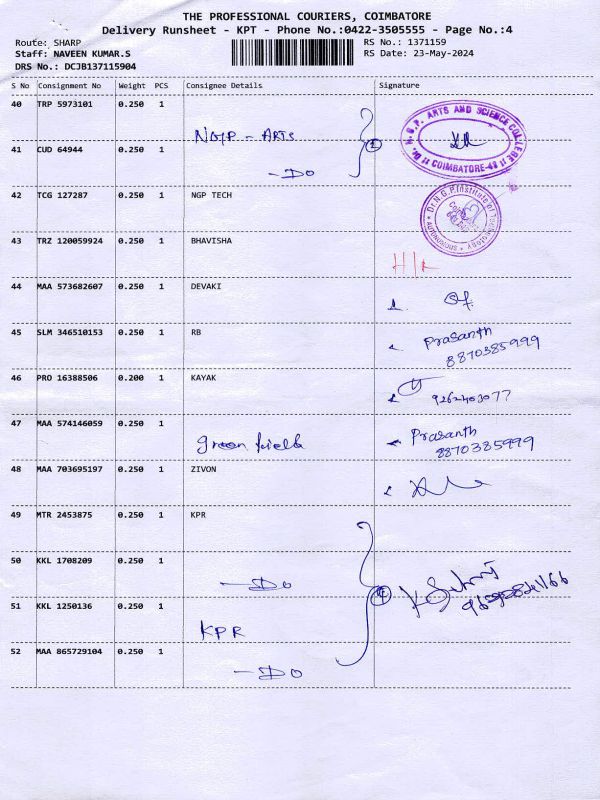 THE PROFESSIONAL COURIERS, COIMBATORE
Delivery Runsheet - KPT - Phone No.:0422-3505555 - Page No.:4
Route: SHARP RS No.: 1371159
Staff: NAVEEN KUMAR.S RS Date: 23-May-2024
DRS No.: DCJB137115904
S No Consignment No Weight PCS Consignee Details Signature
40 TRP 5973101 0.250 1
NGP - ARTS
Dr. N.G.P. ARTS AND SCIENCE COLLEGE
COIMBATORE-48
41 CUD 64944 0.250 1
- DO
42 TCG 127287 0.250 1 NGP TECH
Dr.N.G.P.Institute of Technology
AUTONOMOUS
43 TRZ 120059924 0.250 1 BHAVISHA
44 MAA 573682607 0.250 1 DEVAKI
45 SLM 346510153 0.250 1 RB
Prasanth
8870385999
46 PRO 16388506 0.200 1 KAYAK
47 MAA 574146059 0.250 1
green field
Prasanth
8870385999
48 MAA 703695197 0.250 1 ZIVON
49 MTR 2453875 0.250 1 KPR
50 KKL 1708209 0.250 1
- DO
51 KKL 1250136 0.250 1
KPR
52 MAA 865729104 0.250 1
- DO